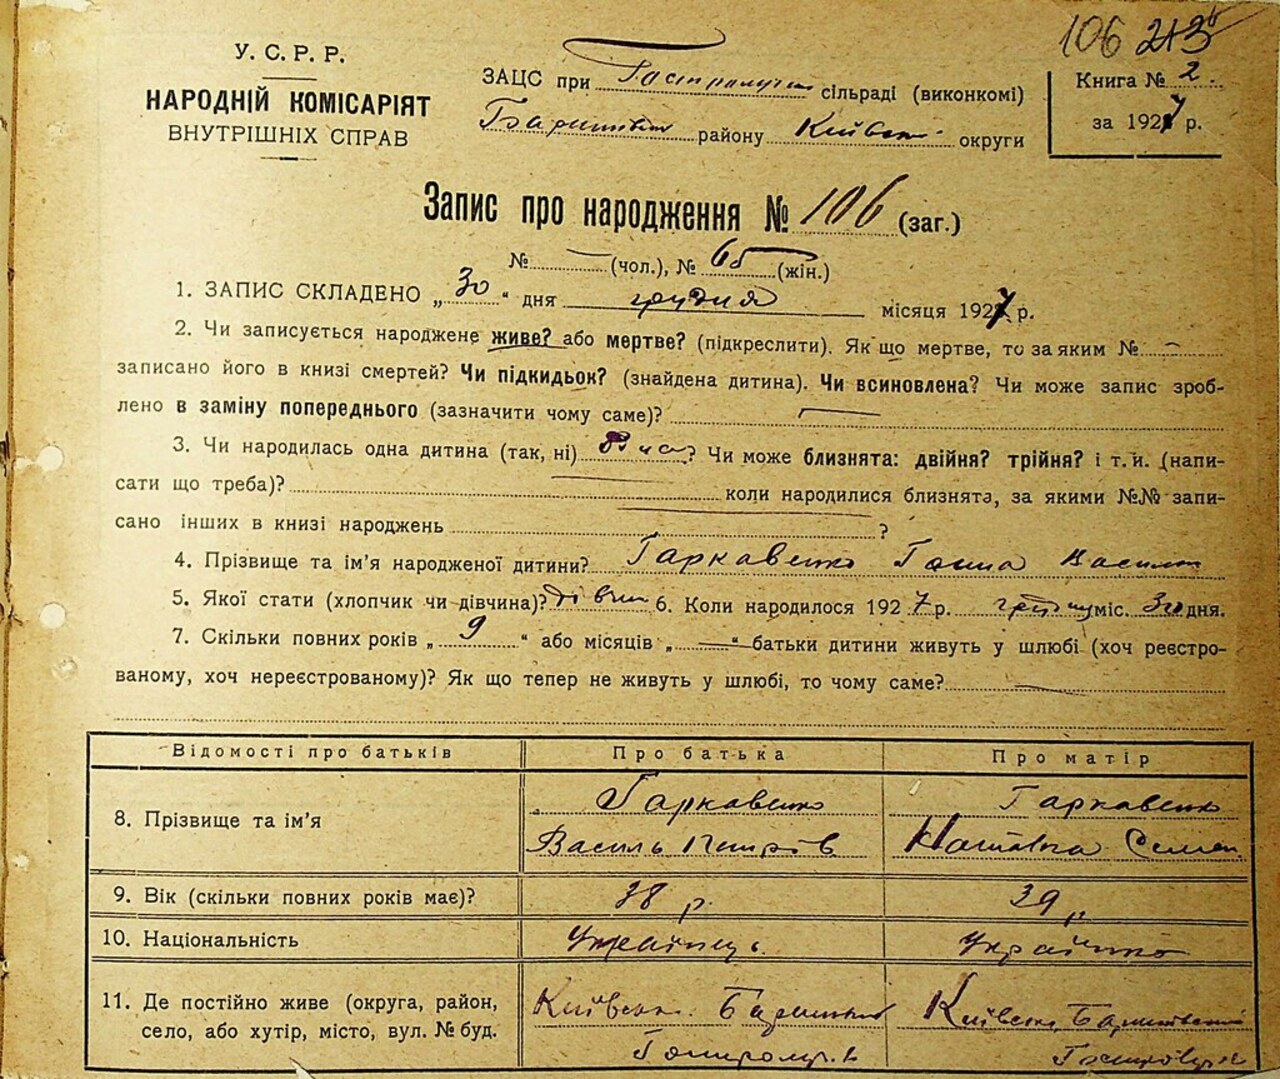 106 213
У. С. Р. Р.
НАРОДНІЙ КОМІСАРІЯТ
ВНУТРІШНІХ СПРАВ
ЗАЦС при сільраді (виконкомі)
району Київськ округи
Книга № 2.
за 1927 р.
Запис про народження № 106 (заг.)
№ — (чол.), № 65 (жін.)
1. ЗАПИС СКЛАДЕНО „ 30 “ дня грудня місяця 1927 р.
2. Чи записується народжене живе? або мертве? (підкреслити). Як що мертве, то за яким № —
записано його в книзі смертей? Чи підкидьок? (знайдена дитина). Чи всиновлена? Чи може запис зроб-
лено в заміну попереднього (зазначити чому саме)? —
3. Чи народилась одна дитина (так, ні) одна? Чи може близнята: двійня? трійня? і т. и. (напи-
сати що треба)? коли народилися близнята, за якими №№ запи-
сано інших в книзі народжень ?
4. Прізвище та ім'я народженої дитини? Гаркавенко Ганна Васил
5. Якої стати (хлопчик чи дівчина)? дівчин 6. Коли народилося 1927 р. грудня міс. 30 дня.
7. Скільки повних років „ 9 “ або місяців „ — “ батьки дитини живуть у шлюбі (хоч реєстро-
ваному, хоч нереєстрованому)? Як що тепер не живуть у шлюбі, то чому саме? —
Відомості про батьків Про батька Про матір
8. Прізвище та ім'я Гаркавенко Гаркавенко
Василь Петров Наталка Семен.
9. Вік (скільки повних років має)? 38 р. 39 р
10. Національність Українець. Українка
11. Де постійно живе (округа, район, Київськ. Київськ
село, або хутір, місто, вул. № буд.